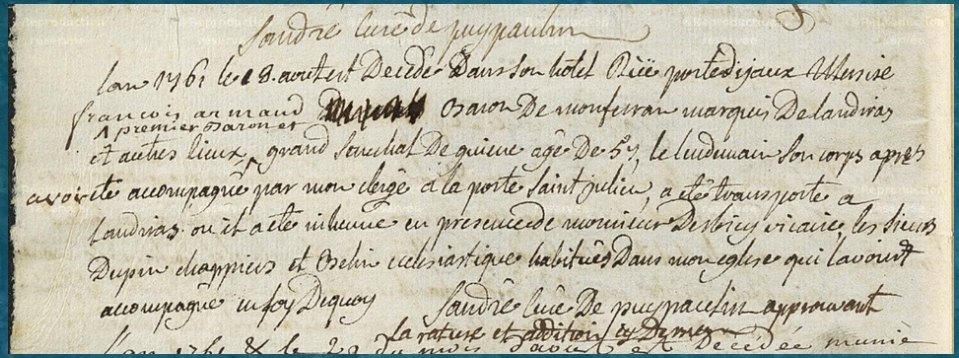 Landré curé de puypaulin
Lan 1761 le 18. aout est Decédé Dans son hotel Rüe porte dijaux Messire
françois armand Baron De monferran marquis De landiras
1 premier Baron et
et autres lieux, grand Senechal De guiene agé De 57, le lendemain son corps apres
avoir ete accompagné par mon clergé a la porte Saint julien, a été transporté a
Landiras ou il a ete inhumé en presence de monsieur vicaire, les sieurs
Dupin chappiers et Belin eclesiastique habitués Dans mon eglise qui lavoint
accompagné en foy Dequoy Landré curé De puypaulin approuvant
la rature et addition cy
Lan 1761 & le 20 du mois est Decédée munie